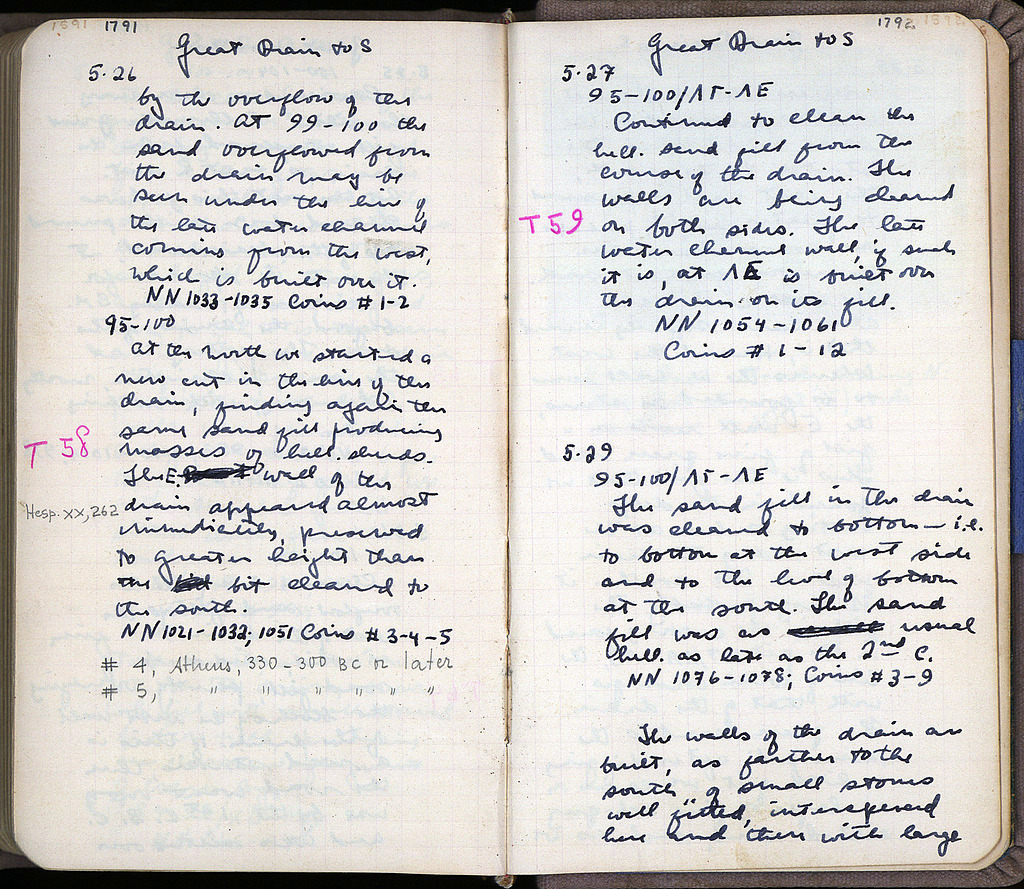 1591 1791
Great Drain to S
5.26
by the overflow of the
drain. At 99-100 the
sand overflowed from
the drain may be
seen under the line of
the late water channel
coming from the west,
which is built over it.
NN 1033-1035 Coins #1-2
95-100
At the north we started a
new cut in the line of the
drain, finding again the
same sand fill producing
T 58
masses of hell. sherds.
The E. wall of the
Hesp. XX, 262
drain appeared almost
immediately, preserved
to greater height than
the bit cleared to
the south.
NN 1021-1032; 1051 Coins #3-4-5
# 4, Athens, 330-300 BC or later
# 5, " " " " " "
1792 1592
Great Drain to S
5.27
95-100/ΛΓ-ΛΕ
Continued to clean the
hell. sand fill from the
course of the drain. The
walls are being cleared
T 59
on both sides. The late
water channel wall, if such
it is, at ΛΕ is built over
the drain on its fill.
NN 1054-1061
Coins #1-12
5.29
95-100/ΛΓ-ΛΕ
The sand fill in the drain
was cleared to bottom - i.e.
to bottom at the west side
and to the level of bottom
at the south. The sand
fill was as usual
hell. as late as the 2nd C.
NN 1076-1078; Coins #3-9
The walls of the drain are
built, as farther to the
south, of small stones
well fitted, interspersed
here and there with large